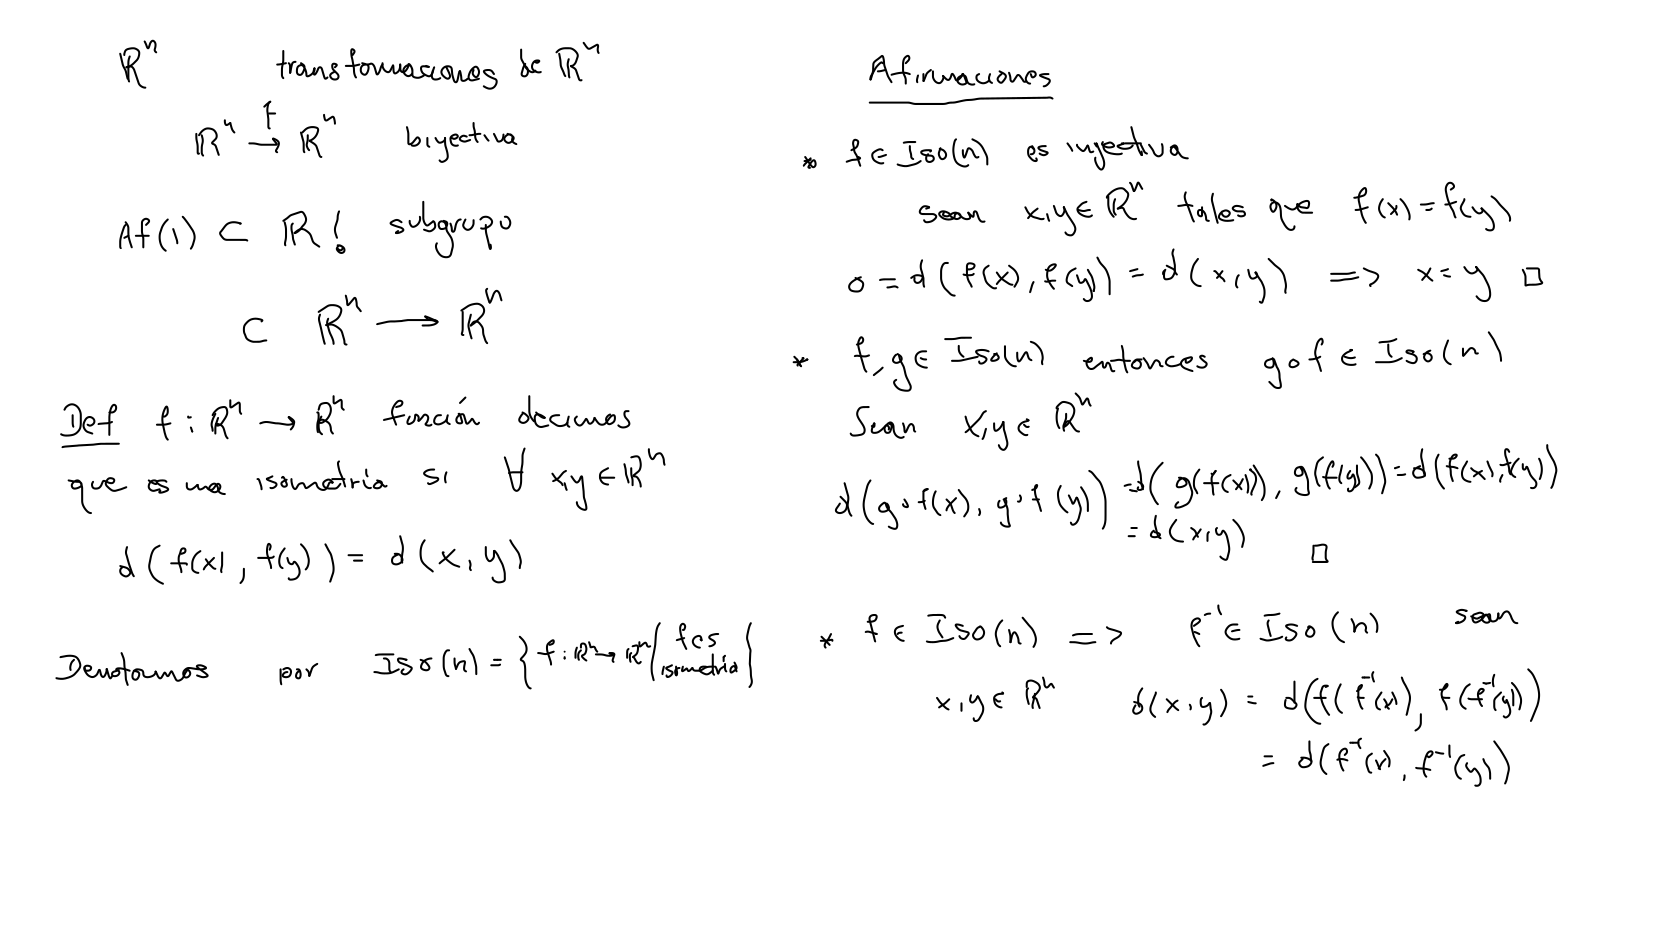 ℝⁿ transformaciones de ℝⁿ
ℝⁿ →^f ℝⁿ biyectiva
Af(1) ⊂ ℝ! subgrupo
⊂ ℝⁿ ⟶ ℝⁿ
Def f : ℝⁿ → ℝⁿ función decimos
que es una isometría si ∀ x,y ∈ ℝⁿ
d(f(x), f(y)) = d(x, y)
Denotamos por Iso(n) = { f : ℝⁿ → ℝⁿ / f es isometría }
Afirmaciones
* f ∈ Iso(n) es inyectiva
sean x,y ∈ ℝⁿ tales que f(x) = f(y)
0 = d(f(x), f(y)) = d(x, y) => x = y □
* f, g ∈ Iso(n) entonces g∘f ∈ Iso(n)
Sean x,y ∈ ℝⁿ
d(g∘f(x), g∘f(y)) = d(g(f(x)), g(f(y))) = d(f(x), f(y))
= d(x,y) □
* f ∈ Iso(n) => f⁻¹ ∈ Iso(n) sean
x,y ∈ ℝⁿ d(x,y) = d(f(f⁻¹(x)), f(f⁻¹(y)))
= d(f⁻¹(x), f⁻¹(y))